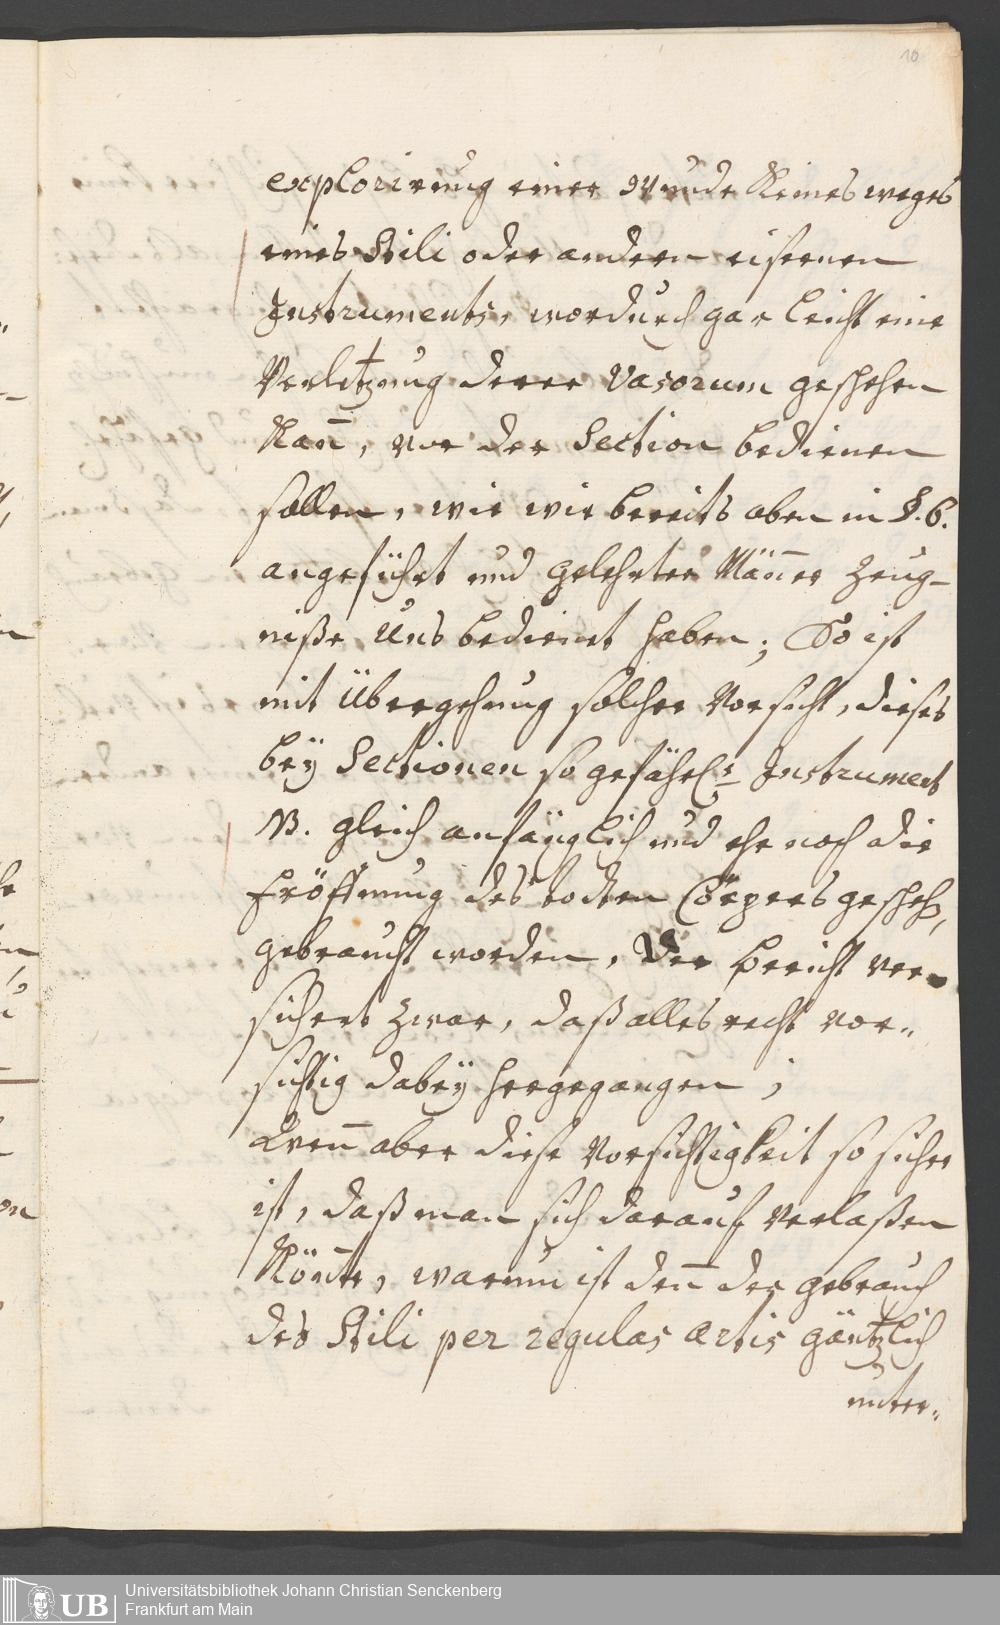 10
explorirung einer Wunde Keines weges
eines Stili oder andern eisernen
Instruments, wordurch gar leicht eine
Verletzung derer Vasorum geschehen
Kan̄, vor der Section bedienen
sollen, wie wir bereits oben in §. 6.
angeführt und gelehrter Män̄er Zeug-
niße Uns bedienet haben; So ist
mit Übergehung solcher Vorsicht, dieses
beÿ Sectionen so gefährl: Instrument
NB. gleich anfänglich und ehe noch die
Eröffnung des todten Cörpers gescheh,
gebraucht worden, Der Bericht ver-
sichert zwar, daß alles recht vor„
sichtig dabeÿ hergegangen;
Wen̄ aber diese Vorsichtigkeit so sicher
ist, daß man sich darauf verlaßen
Kön̄te, warum ist den̄ der gebrauch
des Stili per regulas artis gäntzlich
unter„
Universitätsbibliothek Johann Christian Senckenberg
UB
Frankfurt am Main